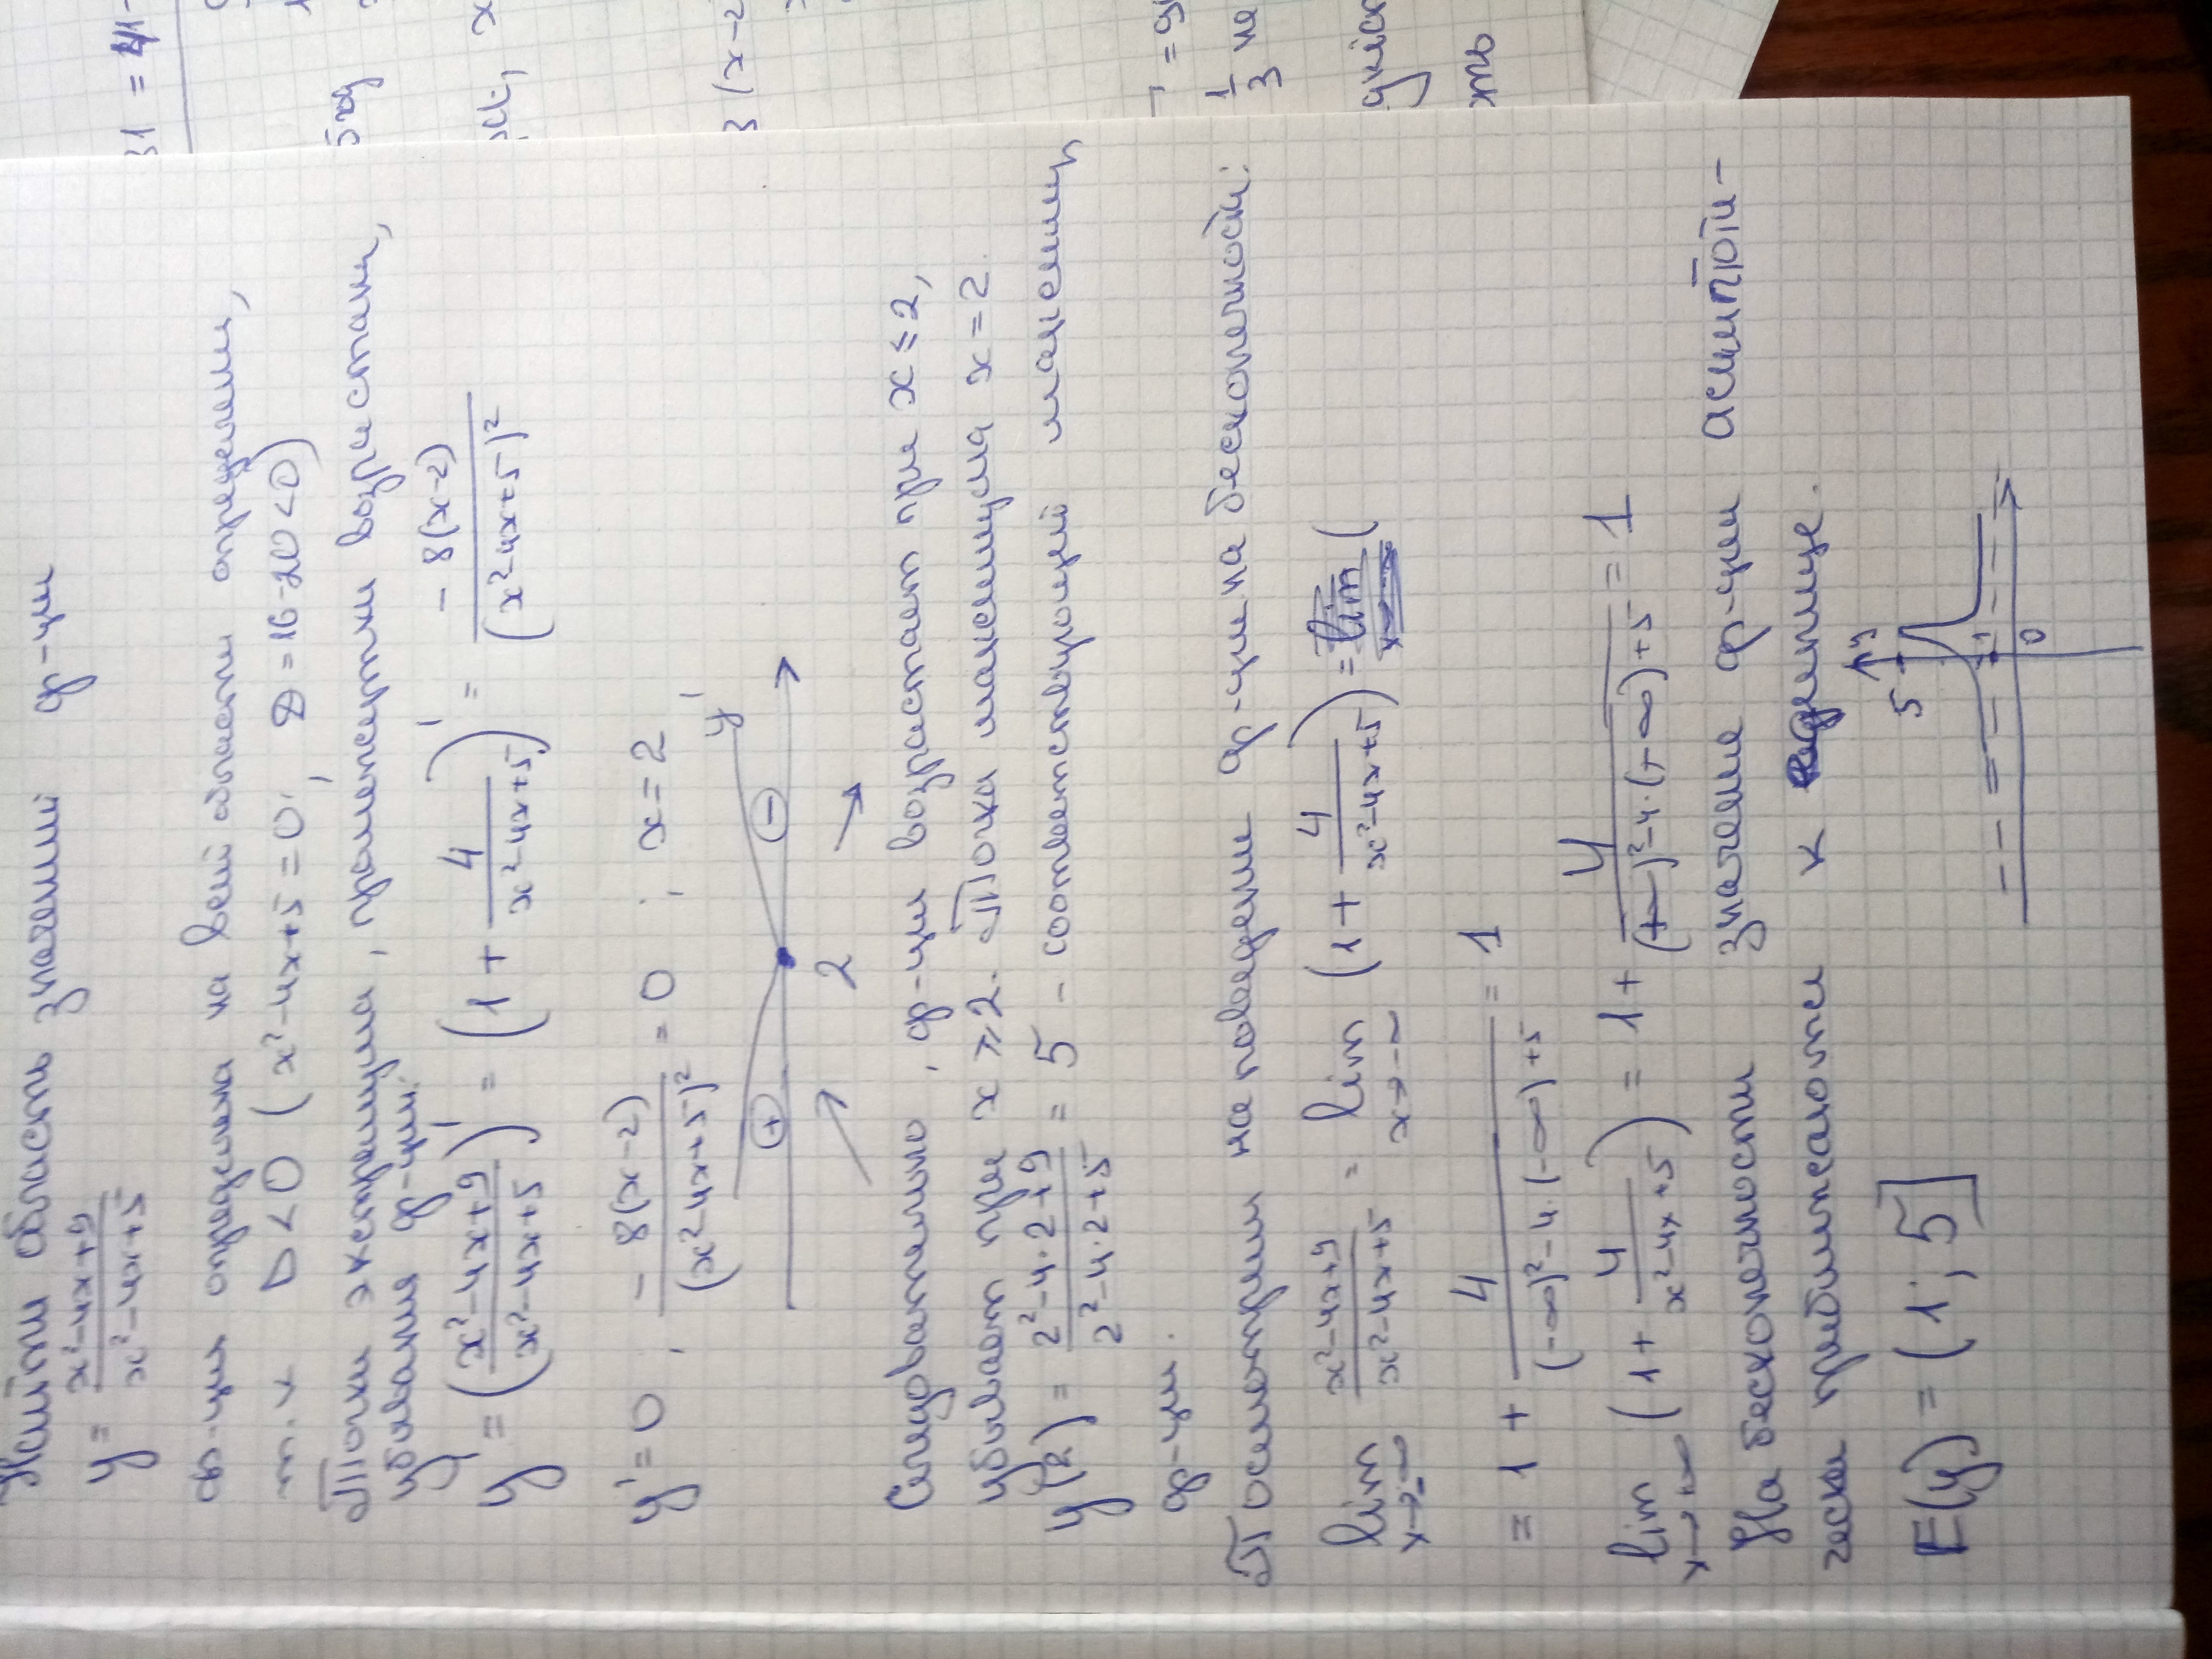 Найти область значений ф-ции
y = (x²-4x+9)/(x²-4x+5)
ф-ция определена на всей области определения,
т.к D<0 (x²-4x+5=0; D=16-20<0)
Точки экстремума, промежутки возрастания,
убывания ф-ции:
y' = ((x²-4x+9)/(x²-4x+5))' = (1 + 4/(x²-4x+5))' = -8(x-2)/(x²-4x+5)²
y'=0 ; -8(x-2)/(x²-4x+5)² = 0 ; x=2
+ - y'
2
Следовательно, ф-ция возрастает при x≤2,
убывает при x≥2. Точка максимума x=2.
y(2) = (2²-4·2+9)/(2²-4·2+5) = 5 - соответствующий максимум
ф-ции.
Посмотрим на поведение ф-ции на бесконечности:
lim x→-∞ (x²-4x+9)/(x²-4x+5) = lim x→-∞ (1 + 4/(x²-4x+5)) =
= 1 + 4/((-∞)²-4·(-∞)+5) = 1
lim x→+∞ (1 + 4/(x²-4x+5)) = 1 + 4/((+∞)²-4·(+∞)+5) = 1
На бесконечности значение ф-ции асимптоти-
чески приближается к единице.
E(y) = (1; 5]
y
5
1
0
31 =
3 (x-2
1/3 не